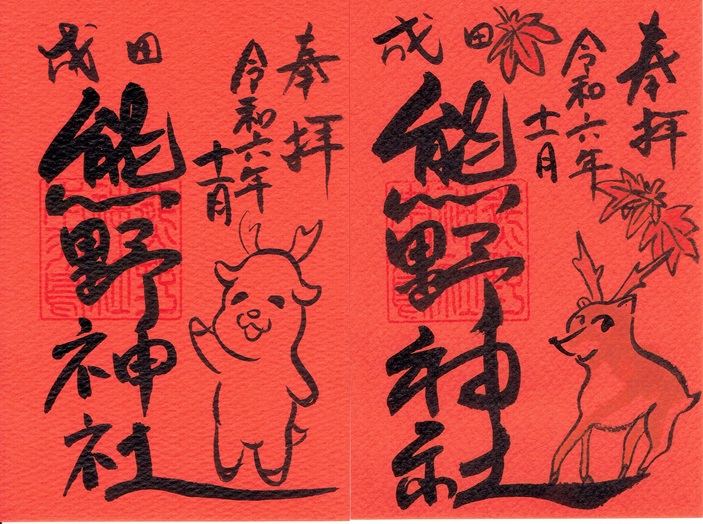 奉拝
令和六年
十一月
成田
熊野神社
奉拝
令和六年
十一月
成田
熊野神社